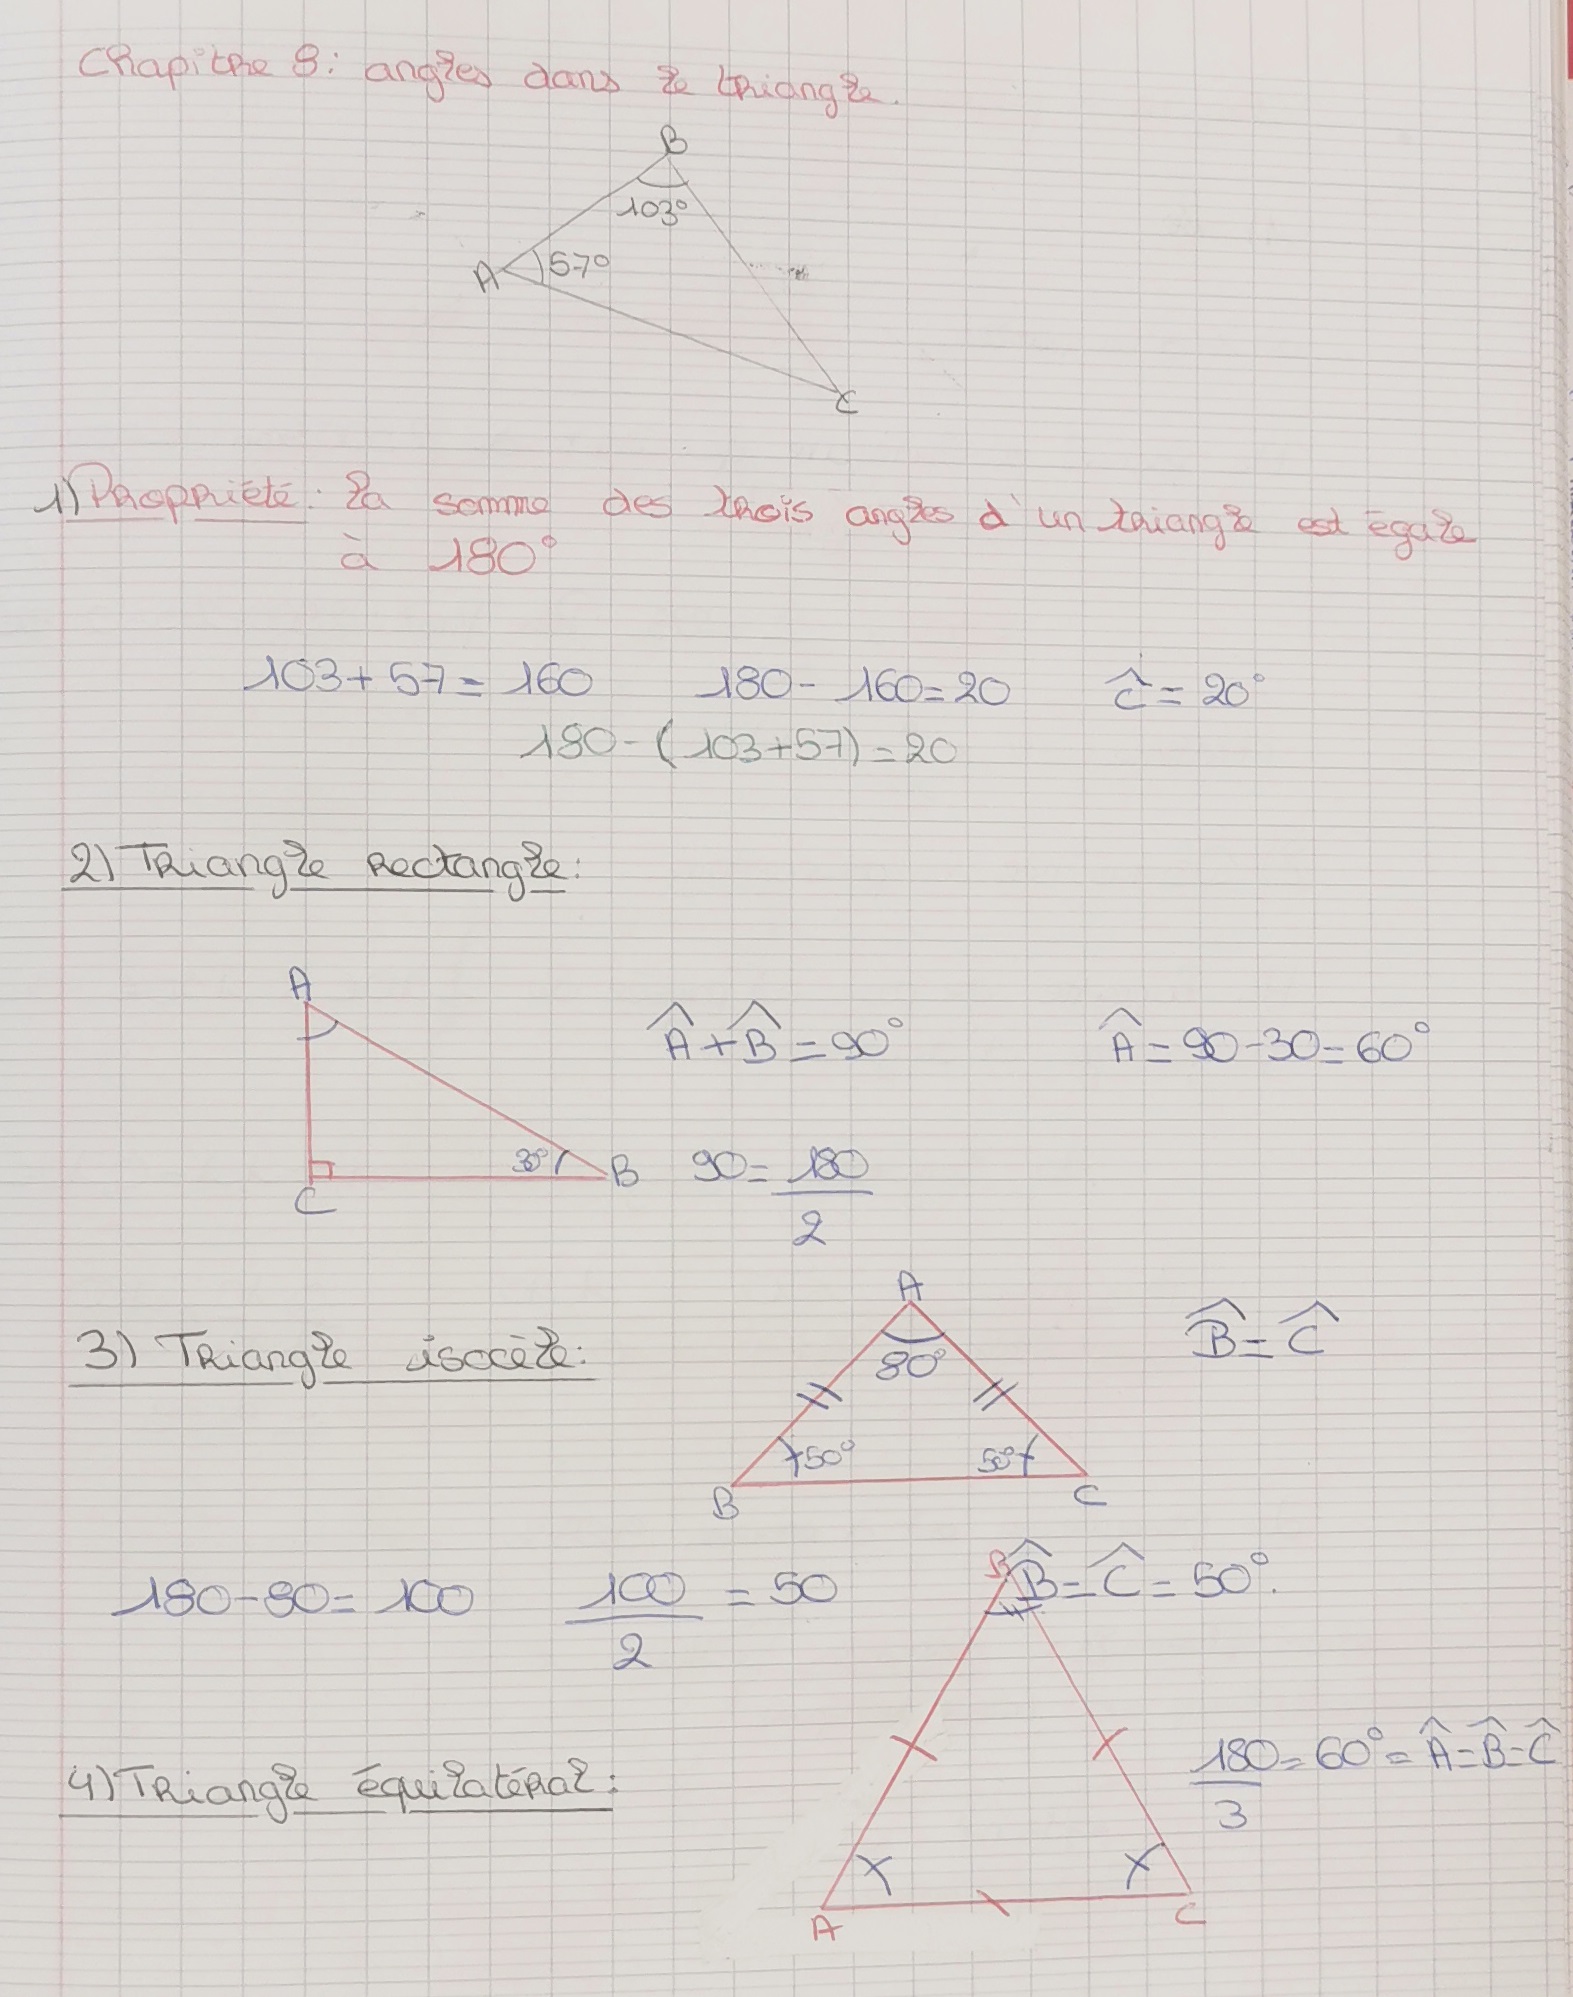 Chapitre 8: angles dans le triangle.
B
103°
A 57°
C
1) Propriété: la somme des trois angles d'un triangle est égale
à 180°
103+57=160 180-160=20 Ĉ=20°
180-(103+57)=20
2) Triangle rectangle:
A
Â+B̂=90° Â=90-30=60°
30° B 90=180/2
C
A
3) Triangle isocèle: B̂=Ĉ
80°
50° 50°
B C
B
180-80=100 100/2=50 B̂=Ĉ=50°.
4) Triangle équilatéral: 180/3=60°=Â=B̂=Ĉ
A C